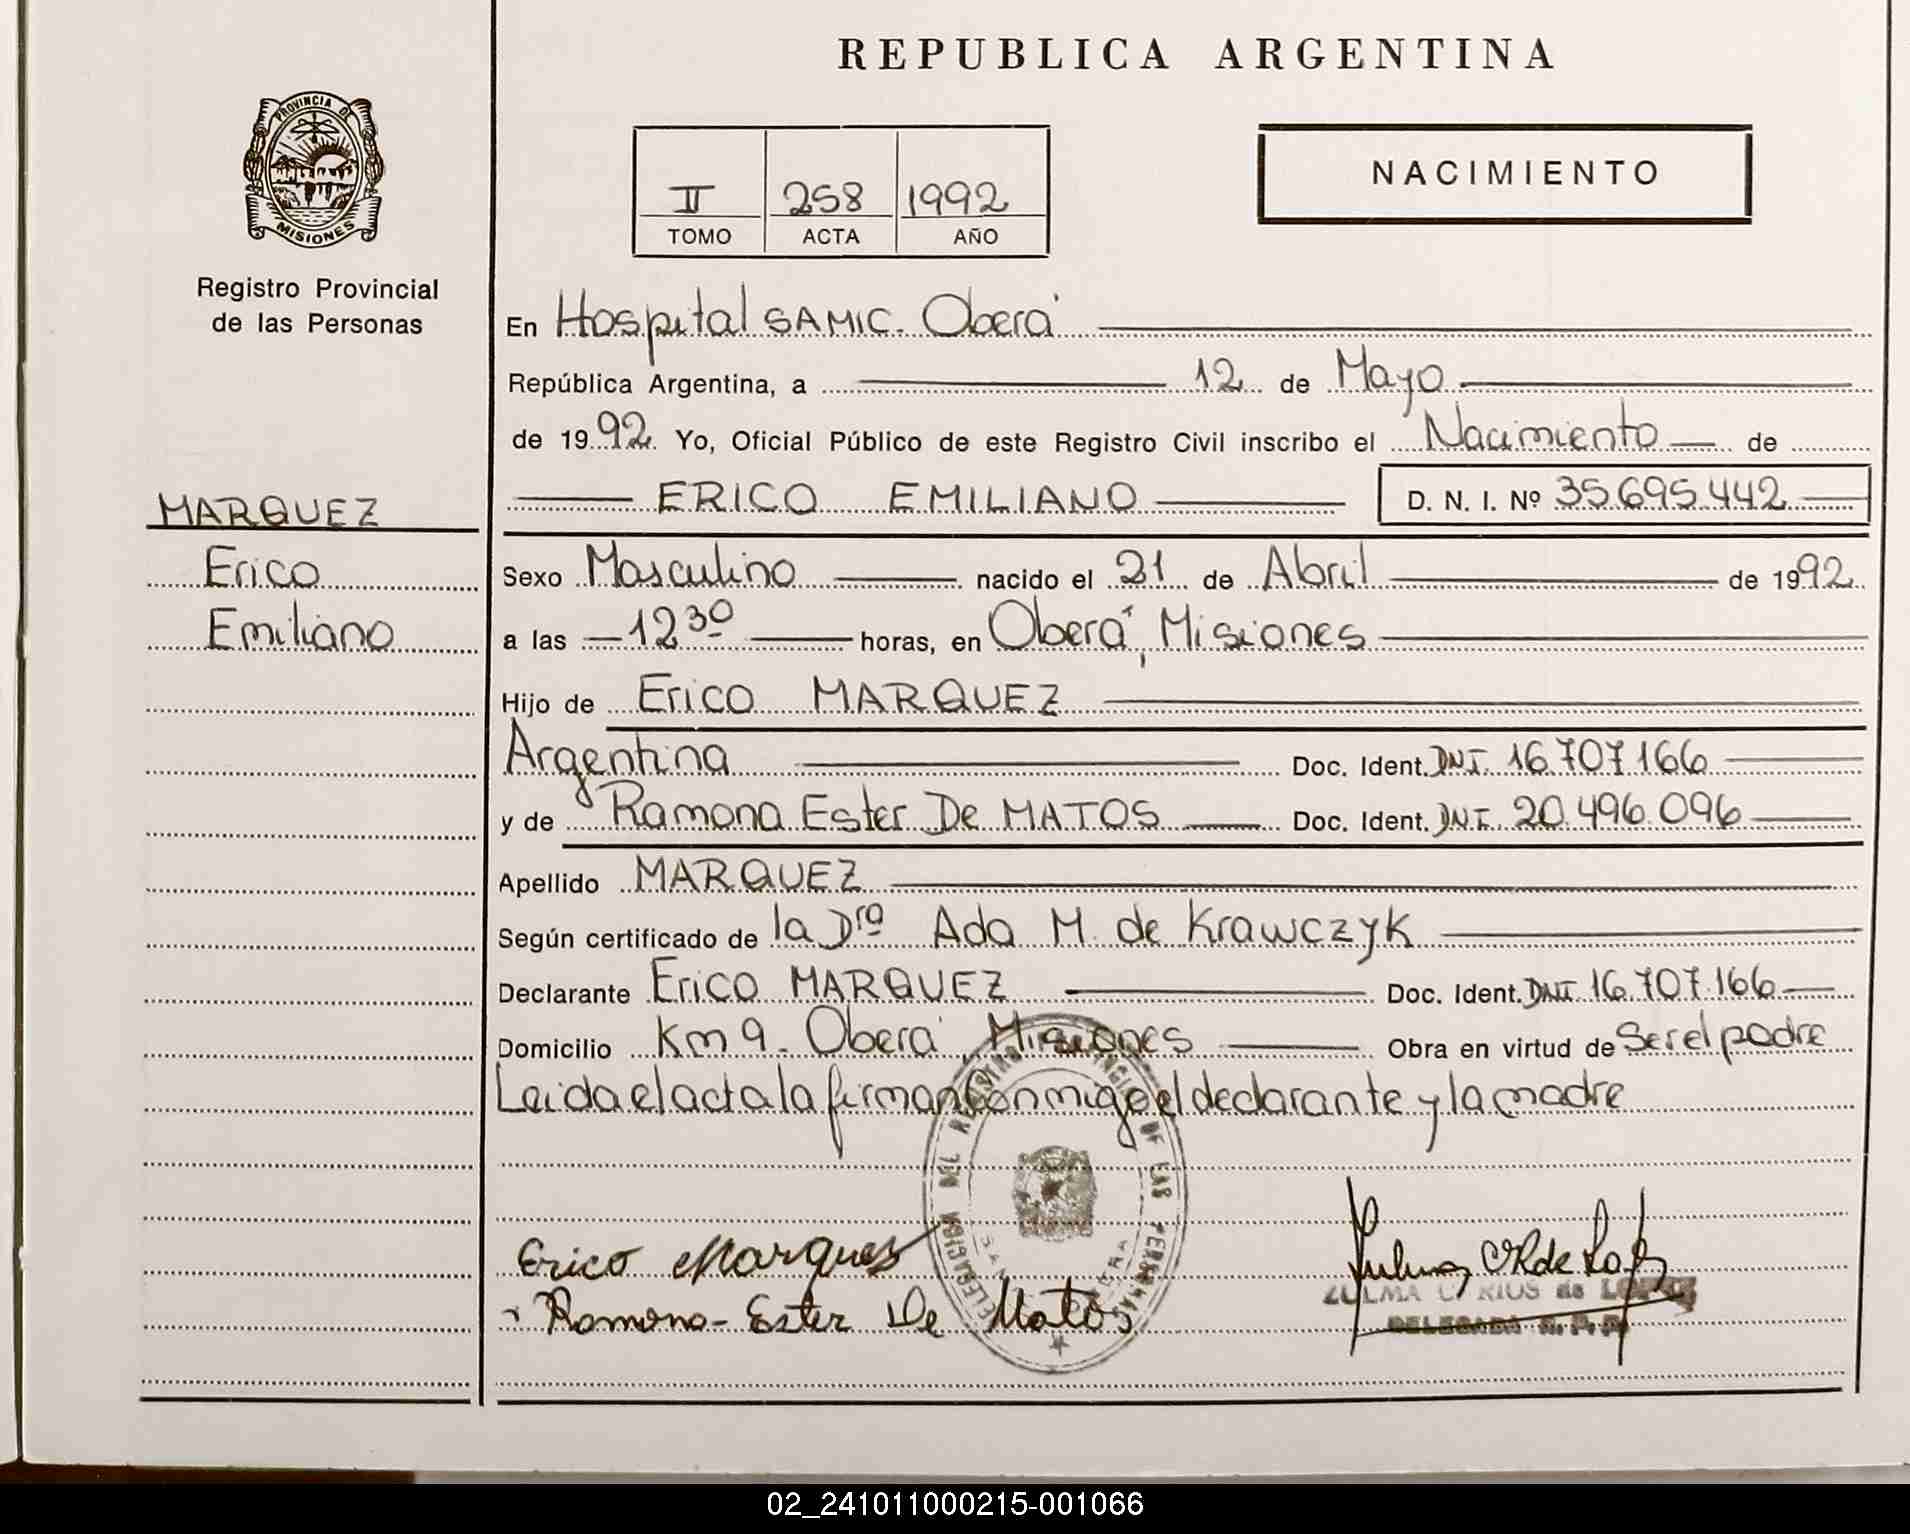 REPUBLICA ARGENTINA
PROVINCIA DE
MISIONES
Registro Provincial
de las Personas
II 258 1992
TOMO ACTA AÑO
NACIMIENTO
En Hospital SAMIC. Oberá
República Argentina, a 12 de Mayo
de 1992. Yo, Oficial Público de este Registro Civil inscribo el Nacimiento de
ERICO EMILIANO D. N. I. Nº 35.695.442
MARQUEZ
Erico
Emiliano
Sexo Masculino nacido el 21 de Abril de 1992
a las 12 30 horas, en Oberá, Misiones
Hijo de Erico MARQUEZ
Argentina Doc. Ident. DNI. 16.707.166
y de Ramona Ester De MATOS Doc. Ident. DNI. 20.496.096
Apellido MARQUEZ
Según certificado de la Dra Ada M. de Krawczyk
Declarante Erico MARQUEZ Doc. Ident. DNI 16.707.166
Domicilio Km 9. Oberá, Misiones Obra en virtud de Ser el padre
Leida el acta la firman Conmigo el declarante y la madre
DELEGACION DEL REGISTRO PROVINCIAL DE LAS PERSONAS
Erico Marquez
Ramona - Ester De Matos
ZULMA C. RIOS de LOPEZ
DELEGADA R. P. P.
02_241011000215-001066